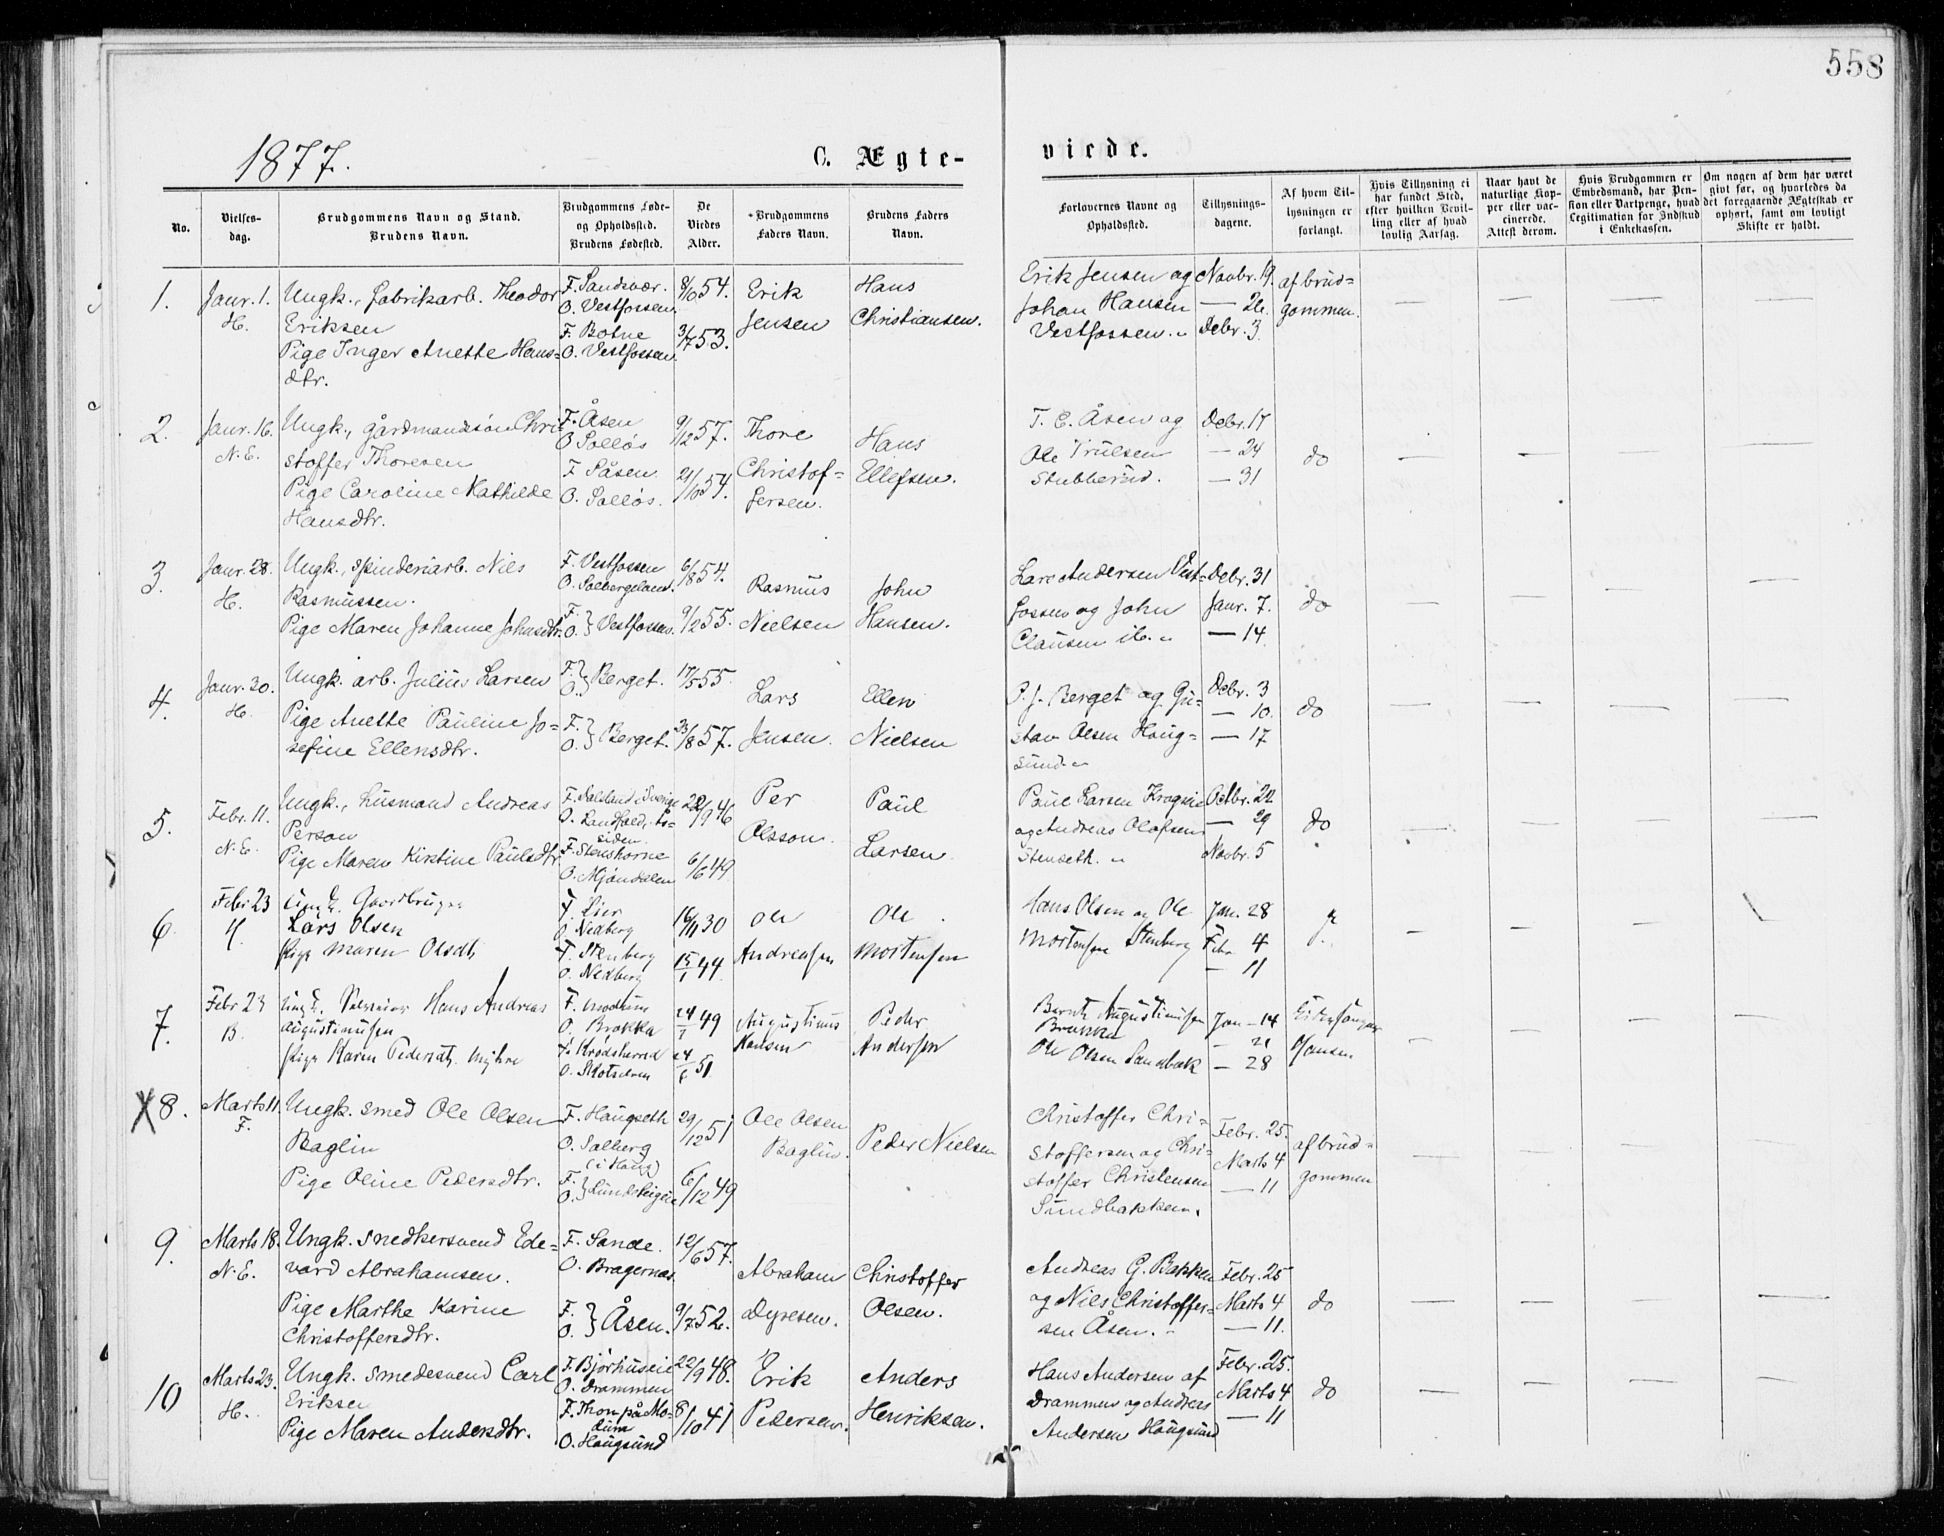 558
1877.
C. Ægte-
viede.
No.
Vielses-
dag.
Brudgommens Navn og Stand.
Brudens Navn.
Brudgommens Føde-
og Opholdssted.
Brudens Fødested.
De
Viedes
Alder.
Brudgommens
Faders Navn.
Brudens Faders
Navn.
Forlovernes Navne og
Opholdssted.
Tillysnings-
dagene.
Af hvem Til-
lysningen er
forlangt.
Hvis Tillysning ei
har fundet Sted,
efter hvilken Bevil-
ling eller af hvad
lovlig Aarsag.
Naar havt de
naturlige Kop-
per eller vac-
cinerede.
Attest derom.
Hvis Brudgommen er
Embedsmand, har Pen-
sion eller Vartpenge, hvad
Legitimation for Indskud
i Enkekassen.
Om nogen af dem har været
givt før, og hvorledes da
det foregaaende Ægteskab er
ophørt, samt om lovligt
Skifte er holdt.
1.
Janr. 1.
H.
Ungk., fabrikarb. Theodor
Eriksen
Pige Inger Anette Hans-
dtr.
F. Sandsvær.
O. Vestfossen.
F. Botne
O. Vestfossen.
8/10 54.
3/7 53.
Erik
Jensen
Hans
Christiansen.
Erik Jensen og
Johan Hansen
Vestfossen.
Novbr. 19.
— 26.
Debr. 3.
af brud-
gommen.
2.
Janr. 16.
N.E.
Ungk., gårdmandssön Chri-
stoffer Thoresen
Pige Caroline Mathilde
Hansdtr.
F. Åsen
O. Solløs
F. Åsen.
O. Solløs.
9/12 57.
21/10 54.
Thore
Christof-
fersen.
Hans
Ellefsen.
T. C. Åsen og
Ole Trulsen
Stubberud.
Debr. 17
— 24
— 31
do
3.
Janr. 28.
H.
Ungk., spinderiarb. Nils
Rasmussen.
Pige Maren Johanne Johnsdtr.
F. Vestfossen
O. Solbergelven.
F.
O. } Vestfossen.
6/8 54.
9/2 55.
Rasmus
Nielsen
John
Hansen.
Lars Andersen Vest-
fossen og John
Clausen ib.
Debr. 31
Janr. 7.
— 14.
do
4.
Janr. 30.
H.
Ungk. arb. Julius Larsen
Pige Anette Pauline Jo-
sefine Ellensdtr.
F.
O. } Berget.
F.
O. } Berget.
17/5 55.
23/8 57.
Lars
Jensen.
Ellen
Nielsen
P. J. Berget og Gu-
stav Olsen Houg-
sund
Debr. 3
— 10.
— 17
do
5.
Febr. 11.
N.E.
Ungk., husmand Andreas
Person
Pige Maren Kirstine Paulsdtr.
F. Dalsland i Sverige
siden.
F. Stenshorne
O. Mjöndalen
22/9 46
6/6 49.
Per
Olsson.
Paul
Larsen.
Paul Larsen
og Andreas Olafsen
Stenseth.
Octbr. 22
— 29
Novbr. 5
do
6.
Febr 23
H.
Ungk. Gaardbruger
Lars Olsen
Pige Maren Olsdt.
F. Lier
O. Nedberg
F. Stenberg
O. Nedberg
16/11 30
15/1 44
Ole
Andreasen
Ole
Mortensen
Hans Olsen og Ole
Mortensen Stenberg
Jan. 28
Febr 4
— 11
7.
Febr 23
B.
Ungk. Hans Andreas
Augustinusen
Pige Karen Pedersdt. Myhre
F. Modum
O. Brokka
F. Krödsherred
O. Skotselven
24/1 49
24/6 51
Augustinus
Hansen
Peder
Andersen
Bernt Augustinusen
Ole Olsen Sandbæk
Jan — 14
— 21
— 28
Kirkesanger
Hansen
X 8.
Marts 11.
F.
Ungk. smed Ole Olsen
Baglin
Pige Oline Pedersdtr.
F. Haugseth
O. Solberg
(i Haug)
F.
O. } Lundsteigie
29/12 51
6/12 49
Ole Olsen
Baglin.
Peder Nielsen
Christoffer Chri-
stoffersen og Chri-
stoffer Christensen
Sundbakken.
Febr. 25.
Marts 4
— 11
af brud-
gommen
9.
Marts 18.
N.E.
Ungk. snedkersvend Ede-
vard Abrahamsen.
Pige Marthe Karine
Christoffersdtr.
F. Sande.
O. Bragernes
F.
O. } Åsen.
12/6 57.
9/7 52.
Abraham
Dyresen.
Christoffer
Olsen.
Andreas G. Bakken
og Nils Christoffer-
sen Åsen.
Febr. 25
Marts 4
— 11.
do
10
Marts 23.
H.
Ungk. smedesvend Carl
Eriksen
Pige Maren Andersdtr.
F. Bjørhuseie
O. Drammen
F. Thon på Mo-
dum
O. Haugsund
22/9 48.
8/10 41
Erik
Pedersen.
Anders
Henriksen.
Hans Andersen af
Drammen og Andreas
Andersen Haugsund
Febr. 25.
Marts 4
— 11
do